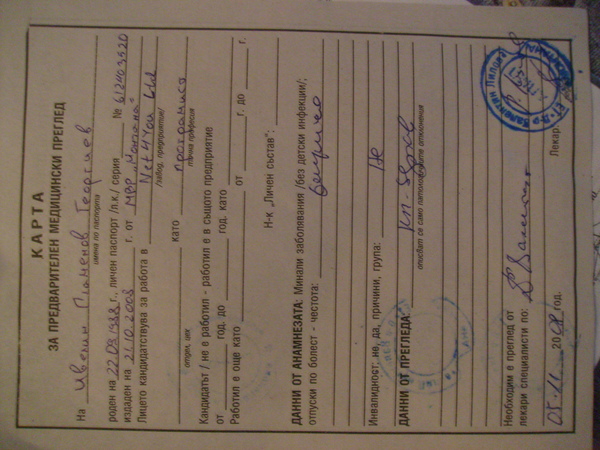 КАРТА
ЗА ПРЕДВАРИТЕЛЕН МЕДИЦИНСКИ ПРЕГЛЕД
На Ивелин Пламенов Георгиев
имена по паспорта
роден на 22.09.1988 г., личен паспорт /л.к./ серия № 613403920
издаден на 21.10.2008 г. от МВР "Монтана"
Лицето кандидатства за работа в Net4You Ltd
/завод, предприятие/
като програмист
отдел, цех точна професия
Кандидатът / не е работил - работил е в същото предприятие
от год. до год. като
Работил е още като от г. до г.
Н-к "Личен състав":
ДАННИ ОТ АНАМНЕЗАТА: Минали заболявания /без детски инфекции/;
отпуски по болест - честота:
Инвалидност: не, да, причини, група: не
ДАННИ ОТ ПРЕГЛЕДА: кл. здрав
описват се само патологичните отклонения
Необходим е преглед от
лекари специалисти по:
05.11. 2008 год. Лекар: